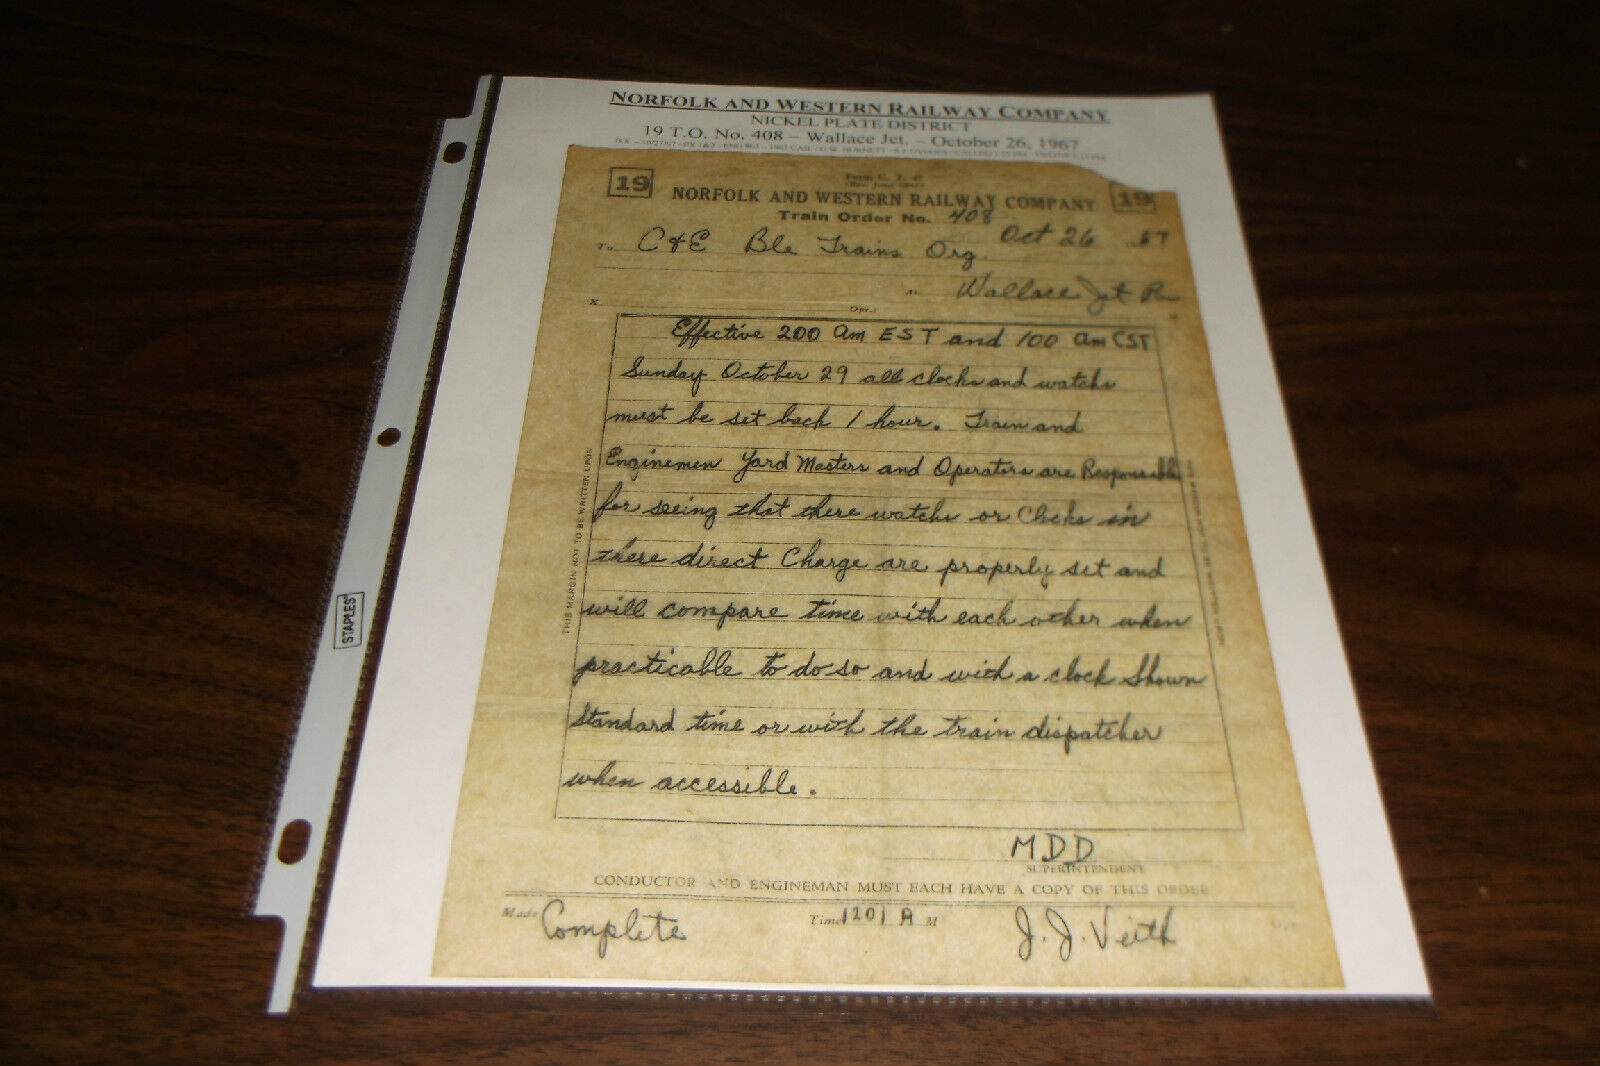 NORFOLK AND WESTERN RAILWAY COMPANY
NICKEL PLATE DISTRICT
19 T.O. No. 408 – Wallace Jct. – October 26, 1967
19
19
NORFOLK AND WESTERN RAILWAY COMPANY
Train Order No. 408
Oct 26 67
To C&E Ble Trains Org.
Wallace Jct Pa
X Opr.;
Effective 200 am EST and 100 am CST
Sunday October 29 all clocks and watchs
must be set back 1 hour. Train and
Enginemen Yard Masters and Operators are Responsable
for seeing that there watchs or Clocks in
there direct Charge are properly set and
will compare time with each other when
practicable to do so and with a clock Shown
Standard time or with the train dispatcher
when accessible.
THIS MARGIN NOT TO BE WRITTEN UPON
MDD
SUPERINTENDENT
CONDUCTOR AND ENGINEMAN MUST EACH HAVE A COPY OF THIS ORDER
Made Complete Time 1201 A M J. J. Veith
STAPLES